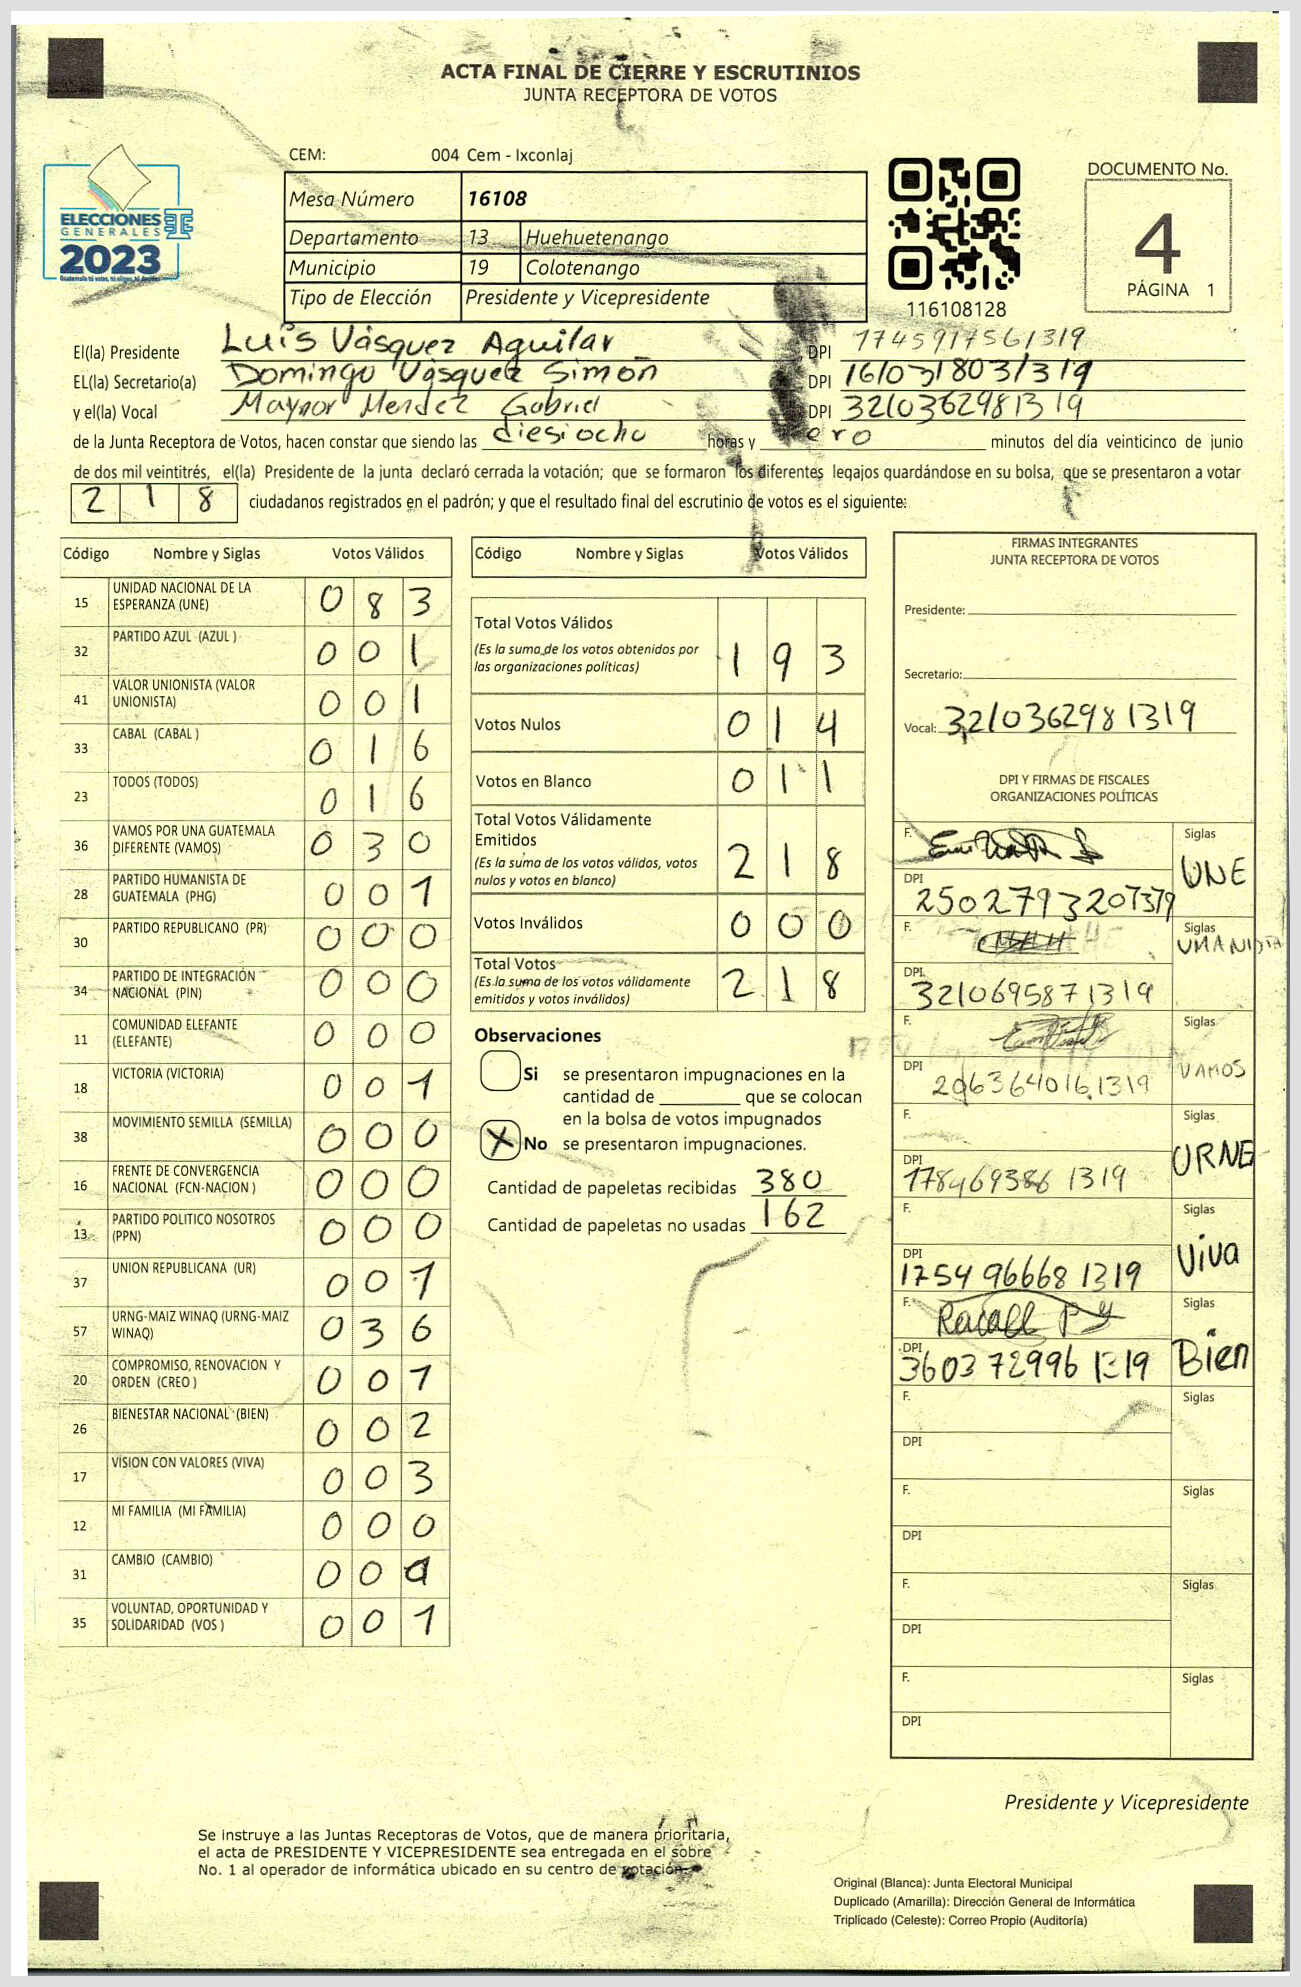 ACTA FINAL DE CIERRE Y ESCRUTINIOS
JUNTA RECEPTORA DE VOTOS
CEM: 004 Cem - Ixconlaj
ELECCIONES
GENERALES
2023
Mesa Número 16108
Departamento 13 Huehuetenango
Municipio 19 Colotenango
Tipo de Elección Presidente y Vicepresidente
116108128
DOCUMENTO No.
4
PÁGINA 1
El(la) Presidente Luis Vásquez Aguilar DPI 1745917561319
EL(la) Secretario(a) Domingo Vásquez Simón DPI 1610318031319
y el(la) Vocal Maynor Mendez Gabriel DPI 3210362981319
de la Junta Receptora de Votos, hacen constar que siendo las diesiocho horas y sero minutos del día veinticinco de junio
de dos mil veintitrés, el(la) Presidente de la junta declaró cerrada la votación; que se formaron los diferentes legajos guardándose en su bolsa, que se presentaron a votar
218 ciudadanos registrados en el padrón; y que el resultado final del escrutinio de votos es el siguiente:
Código Nombre y Siglas Votos Válidos
15 UNIDAD NACIONAL DE LA ESPERANZA (UNE) 083
32 PARTIDO AZUL (AZUL ) 001
41 VALOR UNIONISTA (VALOR UNIONISTA) 001
33 CABAL (CABAL ) 016
23 TODOS (TODOS) 016
36 VAMOS POR UNA GUATEMALA DIFERENTE (VAMOS) 030
28 PARTIDO HUMANISTA DE GUATEMALA (PHG) 001
30 PARTIDO REPUBLICANO (PR) 000
34 PARTIDO DE INTEGRACIÓN NACIONAL (PIN) 000
11 COMUNIDAD ELEFANTE (ELEFANTE) 000
18 VICTORIA (VICTORIA) 001
38 MOVIMIENTO SEMILLA (SEMILLA) 000
16 FRENTE DE CONVERGENCIA NACIONAL (FCN-NACION ) 000
13 PARTIDO POLITICO NOSOTROS (PPN) 000
37 UNION REPUBLICANA (UR) 001
57 URNG-MAIZ WINAQ (URNG-MAIZ WINAQ) 036
20 COMPROMISO, RENOVACION Y ORDEN (CREO ) 001
26 BIENESTAR NACIONAL (BIEN) 002
17 VISION CON VALORES (VIVA) 003
12 MI FAMILIA (MI FAMILIA) 000
31 CAMBIO (CAMBIO) 00
35 VOLUNTAD, OPORTUNIDAD Y SOLIDARIDAD (VOS ) 001
Código Nombre y Siglas Votos Válidos
Total Votos Válidos 193
(Es la suma de los votos obtenidos por
las organizaciones políticas)
Votos Nulos 014
Votos en Blanco 011
Total Votos Válidamente
Emitidos 218
(Es la suma de los votos válidos, votos
nulos y votos en blanco)
Votos Inválidos 000
Total Votos 218
(Es la suma de los votos válidamente
emitidos y votos inválidos)
Observaciones
Si se presentaron impugnaciones en la
cantidad de ________ que se colocan
en la bolsa de votos impugnados
X No se presentaron impugnaciones.
Cantidad de papeletas recibidas 380
Cantidad de papeletas no usadas 162
FIRMAS INTEGRANTES
JUNTA RECEPTORA DE VOTOS
Presidente:
Secretario:
Vocal: 3210362981319
DPI Y FIRMAS DE FISCALES
ORGANIZACIONES POLÍTICAS
F. Siglas UNE
DPI 2502793207379
F. Siglas UMANISTA
DPI 3210695871319
F. Siglas VAMOS
DPI 2063640161319
F. Siglas URNG
DPI 1784693861319
F. Siglas Viva
DPI 1754966681319
F. Siglas Bien
DPI 3603729961319
F. Siglas
DPI
F. Siglas
DPI
F. Siglas
DPI
F. Siglas
DPI
Presidente y Vicepresidente
Se instruye a las Juntas Receptoras de Votos, que de manera prioritaria,
el acta de PRESIDENTE Y VICEPRESIDENTE sea entregada en el sobre
No. 1 al operador de informática ubicado en su centro de votación.
Original (Blanca): Junta Electoral Municipal
Duplicado (Amarilla): Dirección General de Informática
Triplicado (Celeste): Correo Propio (Auditoría)